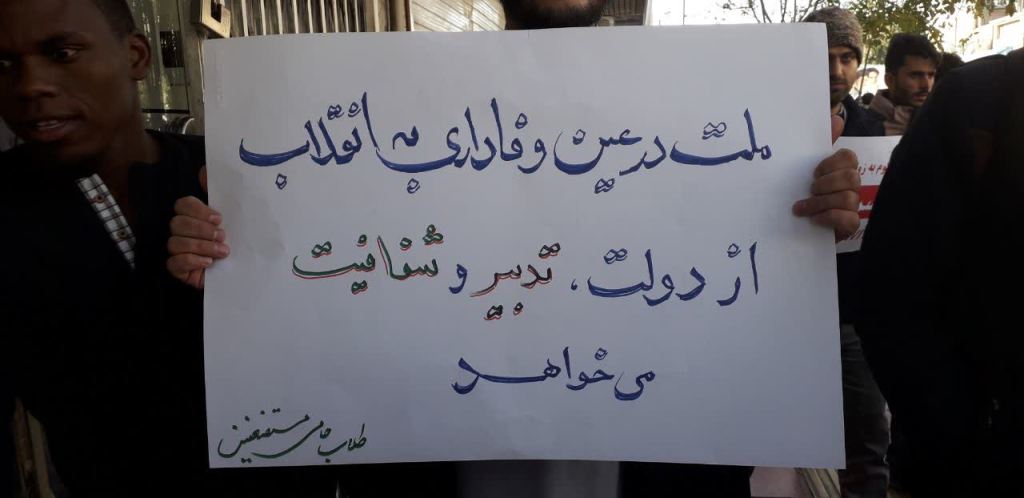 ملت در عین وفاداری به انقلاب
از دولت، تدبیر و شفافیت
می‌خواهد
طلاب حامی مستضعفین